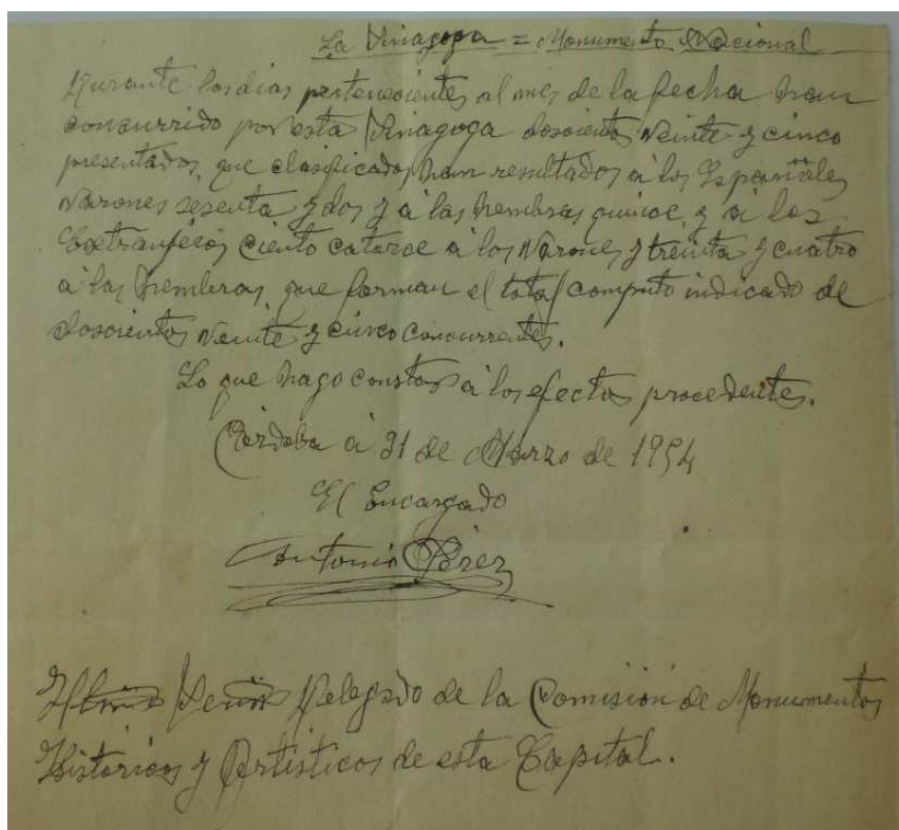 La Sinagoga = Monumento Nacional
Durante los dias pertenecientes al mes de la fecha han
concurrido por esta Sinagoga doscientos veinte y cinco
presentados, que clasificados, han resultados á los Españoles
varones sesenta y dos y á las hembras quince, y á los
Extranjeros ciento catorce á los varones y treinta y cuatro
á las hembras, que forman el total computo indicado de
doscientos veinte y cinco concurrentes.
Lo que hago constar á los efectos procedentes.
Córdoba á 31 de Marzo de 1954
El Encargado
Antonio Pérez
Señor Delegado de la Comisión de Monumentos
Historicos y Artisticos de esta Capital.